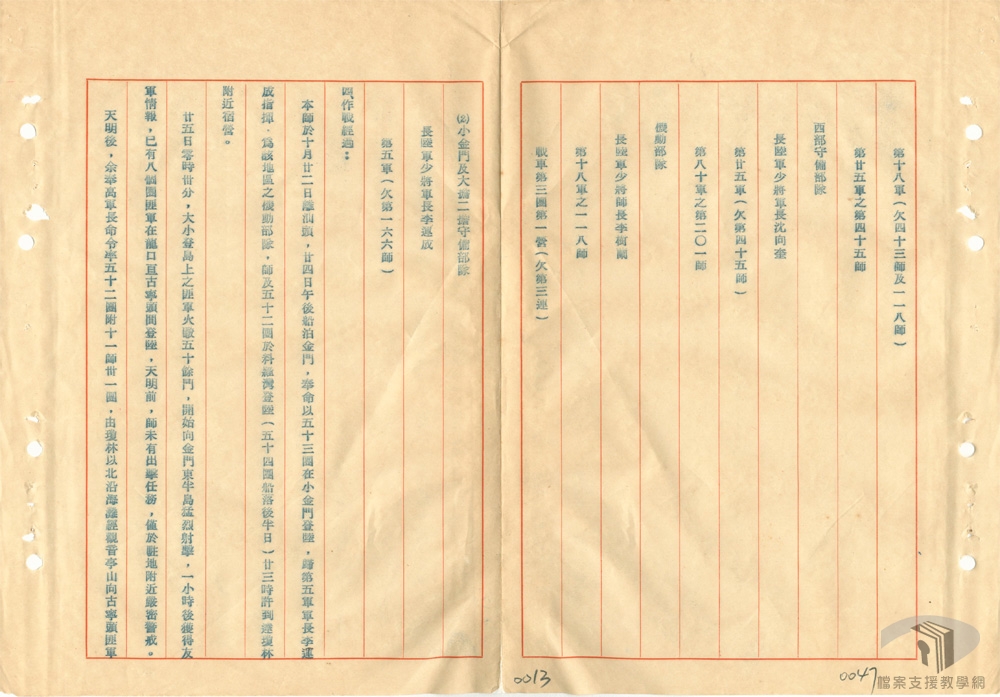 第十八軍（欠四十三師及一一八師）
第廿五軍之第四十五師
西部守備部隊
長陸軍少將軍長沈向奎
第廿五軍（欠第四十五師）
第八十軍之第二〇一師
機動部隊
長陸軍少將師長李樹蘭
第十八軍之一一八師
戰車第三團第一營（欠第三連）
(2)小金門及大膽二膽守備部隊
長陸軍少將軍長李運成
第五軍（欠第一六六師）
四、作戰經過：
本師於十月廿二日離汕頭，廿四日午後船泊金門，奉命以五十三團在小金門登陸，歸第五軍軍長李運
成指揮，為該地區之機動部隊，師及五十二團於料羅灣登陸（五十四團船落後半日）廿三時許到達瓊林
附近宿營。
廿五日零時卅分，大小登島上之匪軍火砲五十餘門，開始向金門東半島猛烈射擊，一小時後獲得友
軍情報，已有八個團匪軍在龍口亘古寧頭間登陸，天明前，師未有出擊任務，僅於駐地附近嚴密警戒。
天明後，余奉高軍長命令率五十二團附十一師卅一團，由瓊林以北沿海灘經觀音亭山向古寧頭匪軍
0013
0047
檔案支援教學網